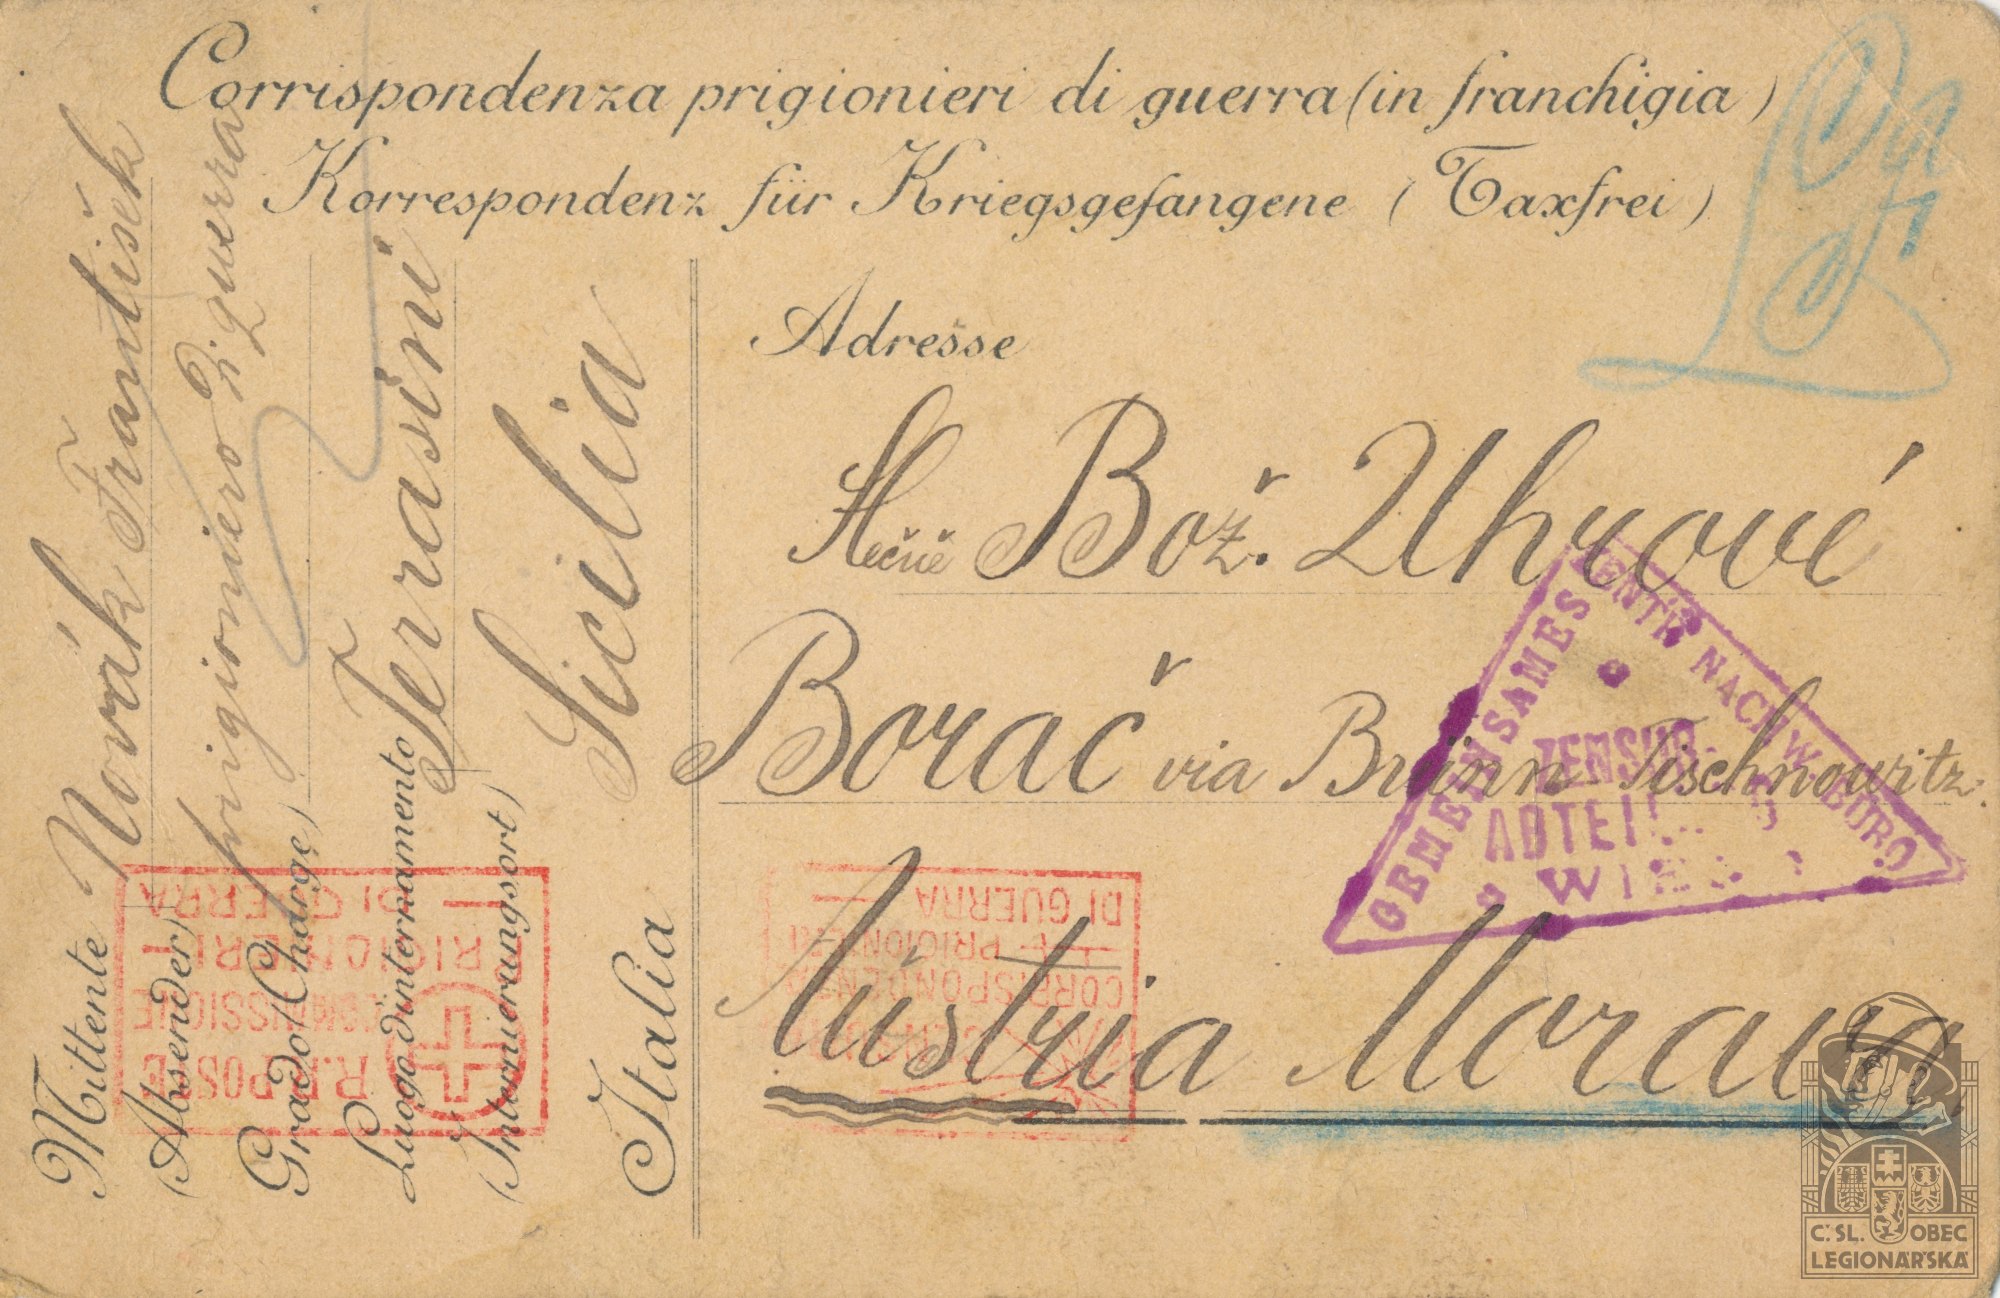 Corrispondenza prigionieri di guerra (in franchigia)
Korrespondenz für Kriegsgefangene (Taxfrei)
Mittente Novák František
(Absender)
prigioniero di guerra
Grado (Charge)
Luogo d'internamento Terrasini
(Internierungsort)
Sicilia
Italia
Adresse
Slečně Bož. Uhrové
Borač via Brünn Tischnowitz.
Austria Morava
GEMEINSAMES ZENTR NACHW. BÜRO
ZENSUR
ABTEIL
WIEN
R.R. POSTE
COMMISSIONE
PRIGIONIERI
DI GUERRA
CENSURA
CORRISPONDENZA
PRIGIONIERI
DI GUERRA
Č. SL. OBEC
LEGIONÁŘSKÁ